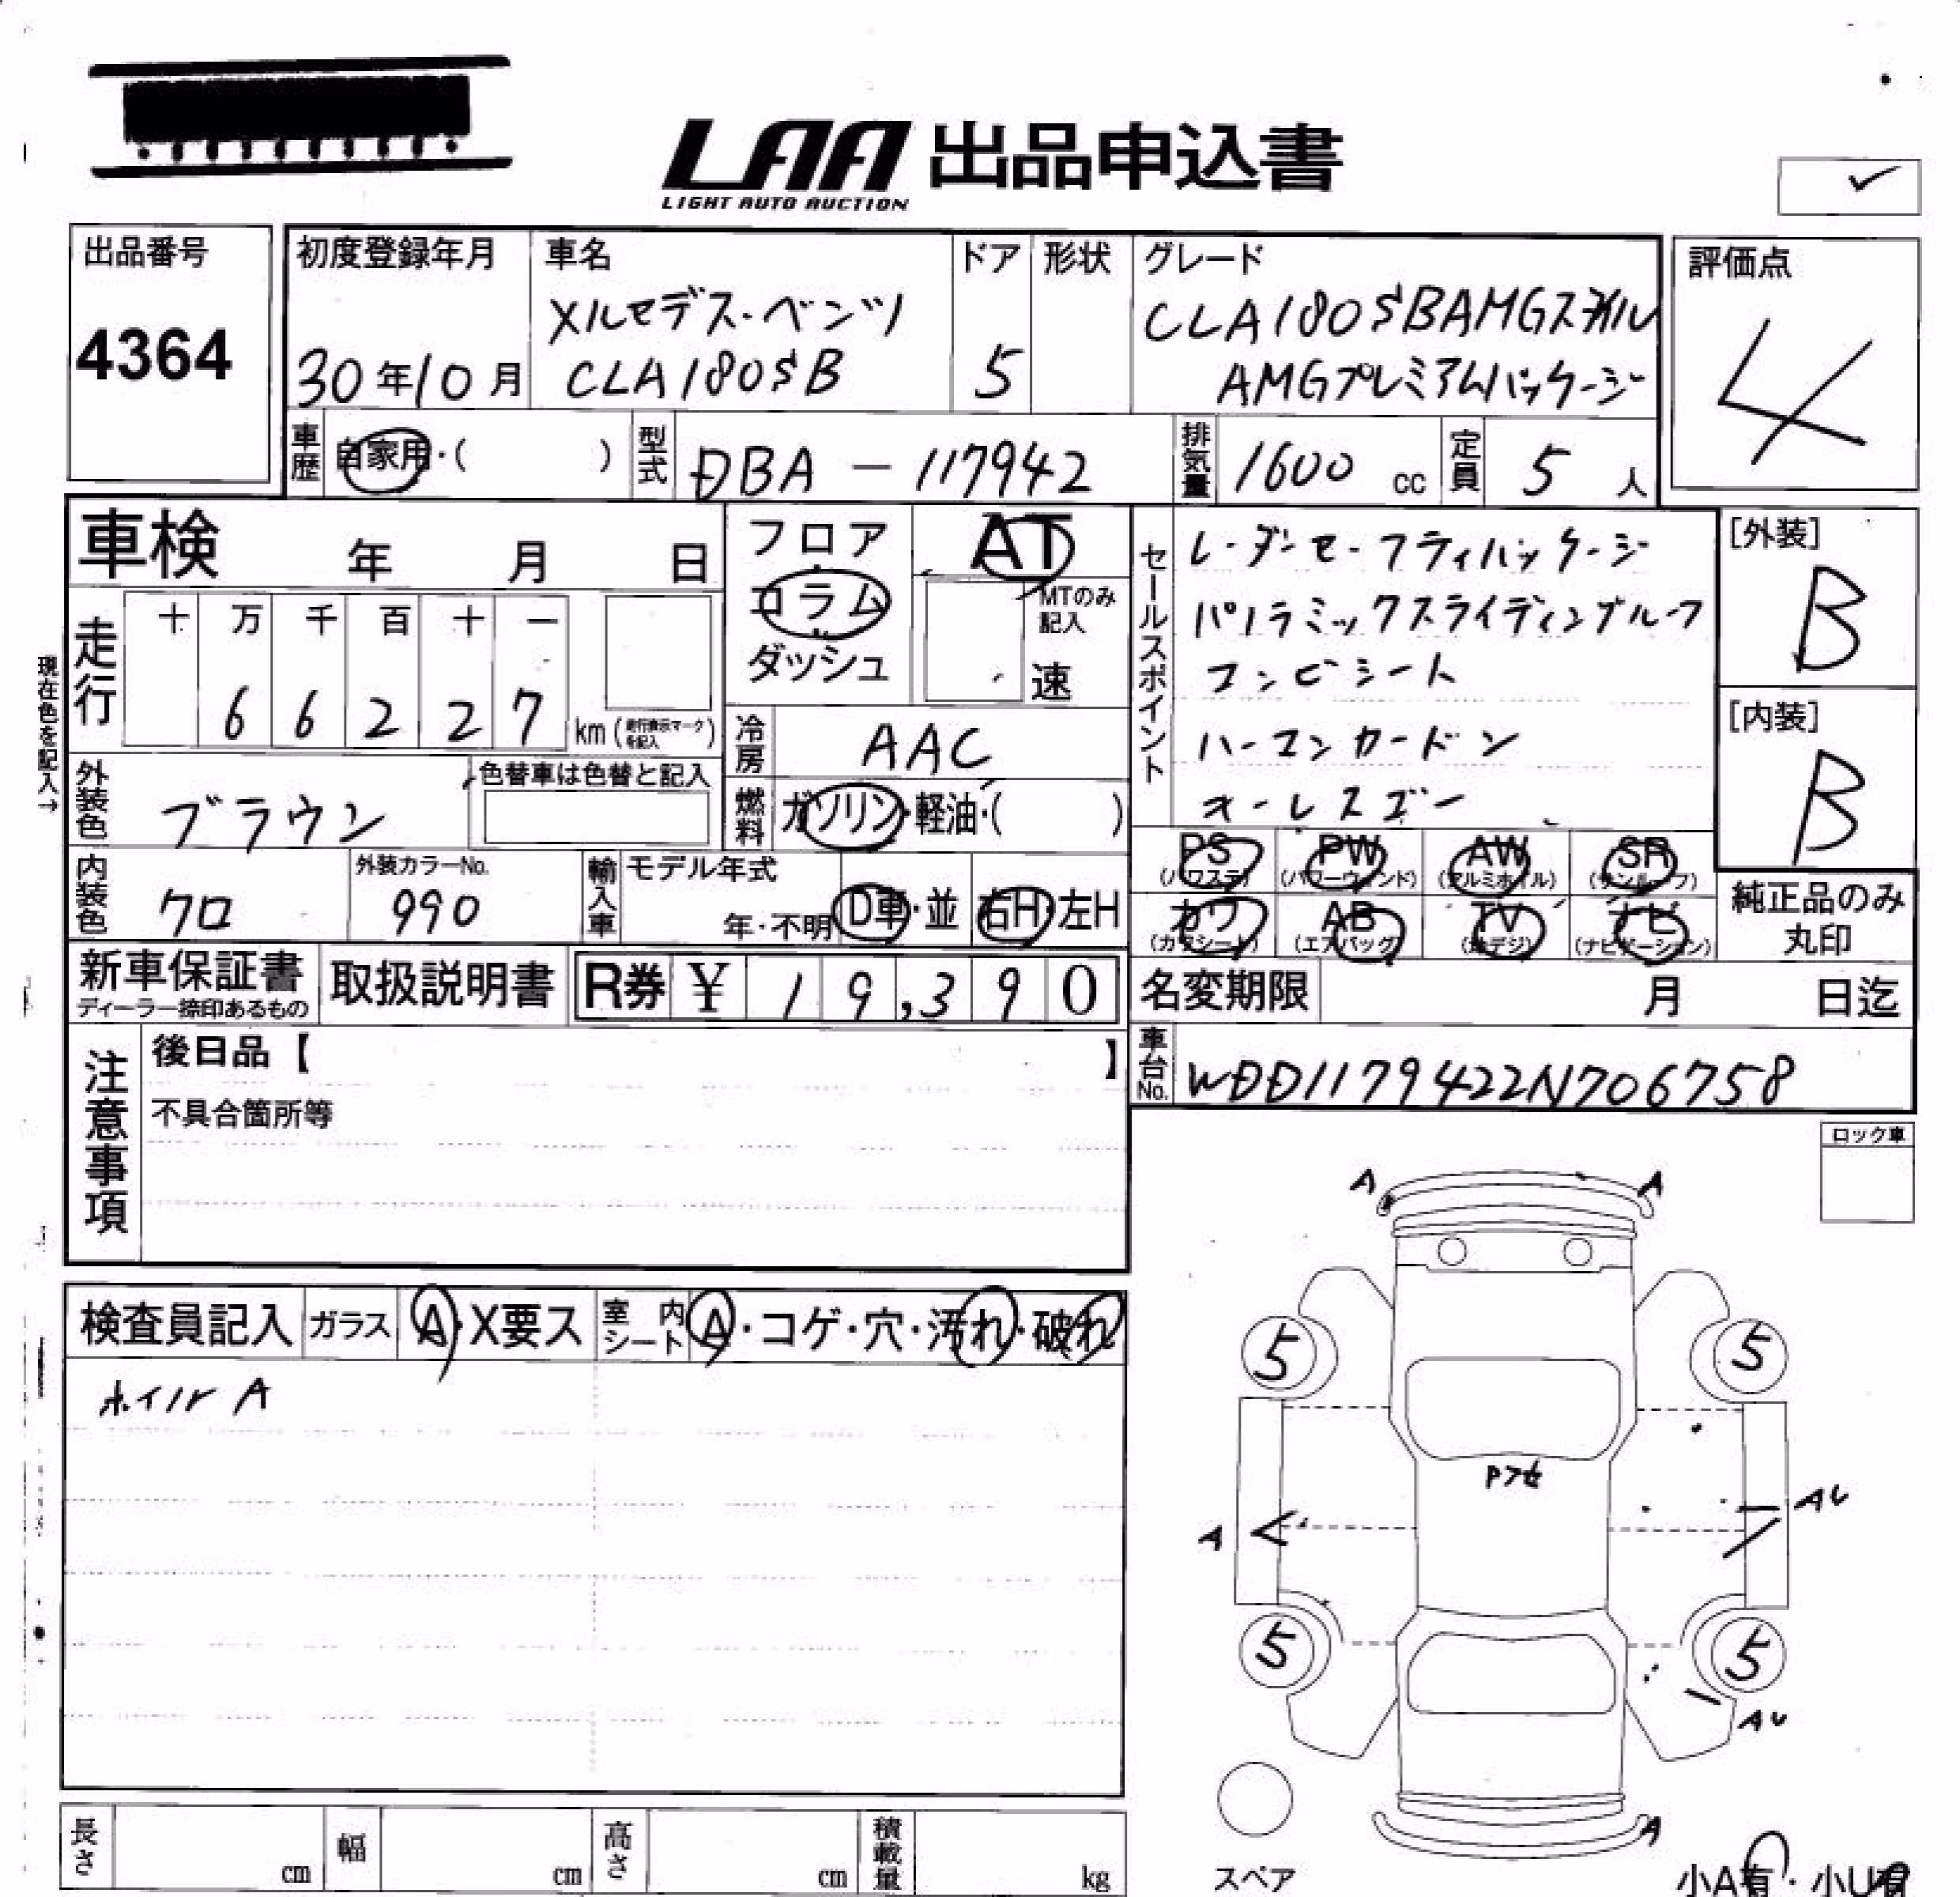 LAA 出品申込書
LIGHT AUTO AUCTION
出品番号
4364
初度登録年月
30年10月
車名
メルセデス・ベンツ
CLA180SB
ドア
5
形状
グレード
CLA180SBAMGスタイル
AMGプレミアムパッケージ
評価点
4
車歴
自家用・( )
型式
DBA-117942
排気量
1600 cc
定員
5 人
車検 年 月 日
フロア
コラム
ダッシュ
AT
MTのみ
記入
速
セールスポイント
レーダーセーフティパッケージ
パノラミックスライディングルーフ
コンビシート
ハーマンカードン
オールスズー
[外装]
B
[内装]
B
現在色を記入→
走行
十 万 千 百 十 一
6 6 2 2 7
km(走行表示マークを記入)
冷房
AAC
外装色
ブラウン
色替車は色替と記入
燃料
ガソリン・軽油・( )
PS
(パワステ)
PW
(パワーウィンド)
AW
(アルミホイル)
SR
(サンルーフ)
内装色
クロ
外装カラーNo.
990
輸入車
モデル年式
年・不明
D車・並
右H・左H
カワ
(カワシート)
AB
(エアバッグ)
TV
(地デジ)
ナビ
(ナビゲーション)
純正品のみ
丸印
新車保証書
ディーラー捺印あるもの
取扱説明書
R券 ¥ 19,390
名変期限 月 日迄
注意事項
後日品【 】
不具合箇所等
車台No.
WDD1179422N706758
ロック車
検査員記入
ガラス
A・X要ス
室内
シート
A・コゲ・穴・汚れ・破れ
ホイルA
A
A
5
5
A
AU
5
5
AU
A
スペア
小A有・小U有
長さ
cm
幅
cm
高さ
cm
積載量
kg